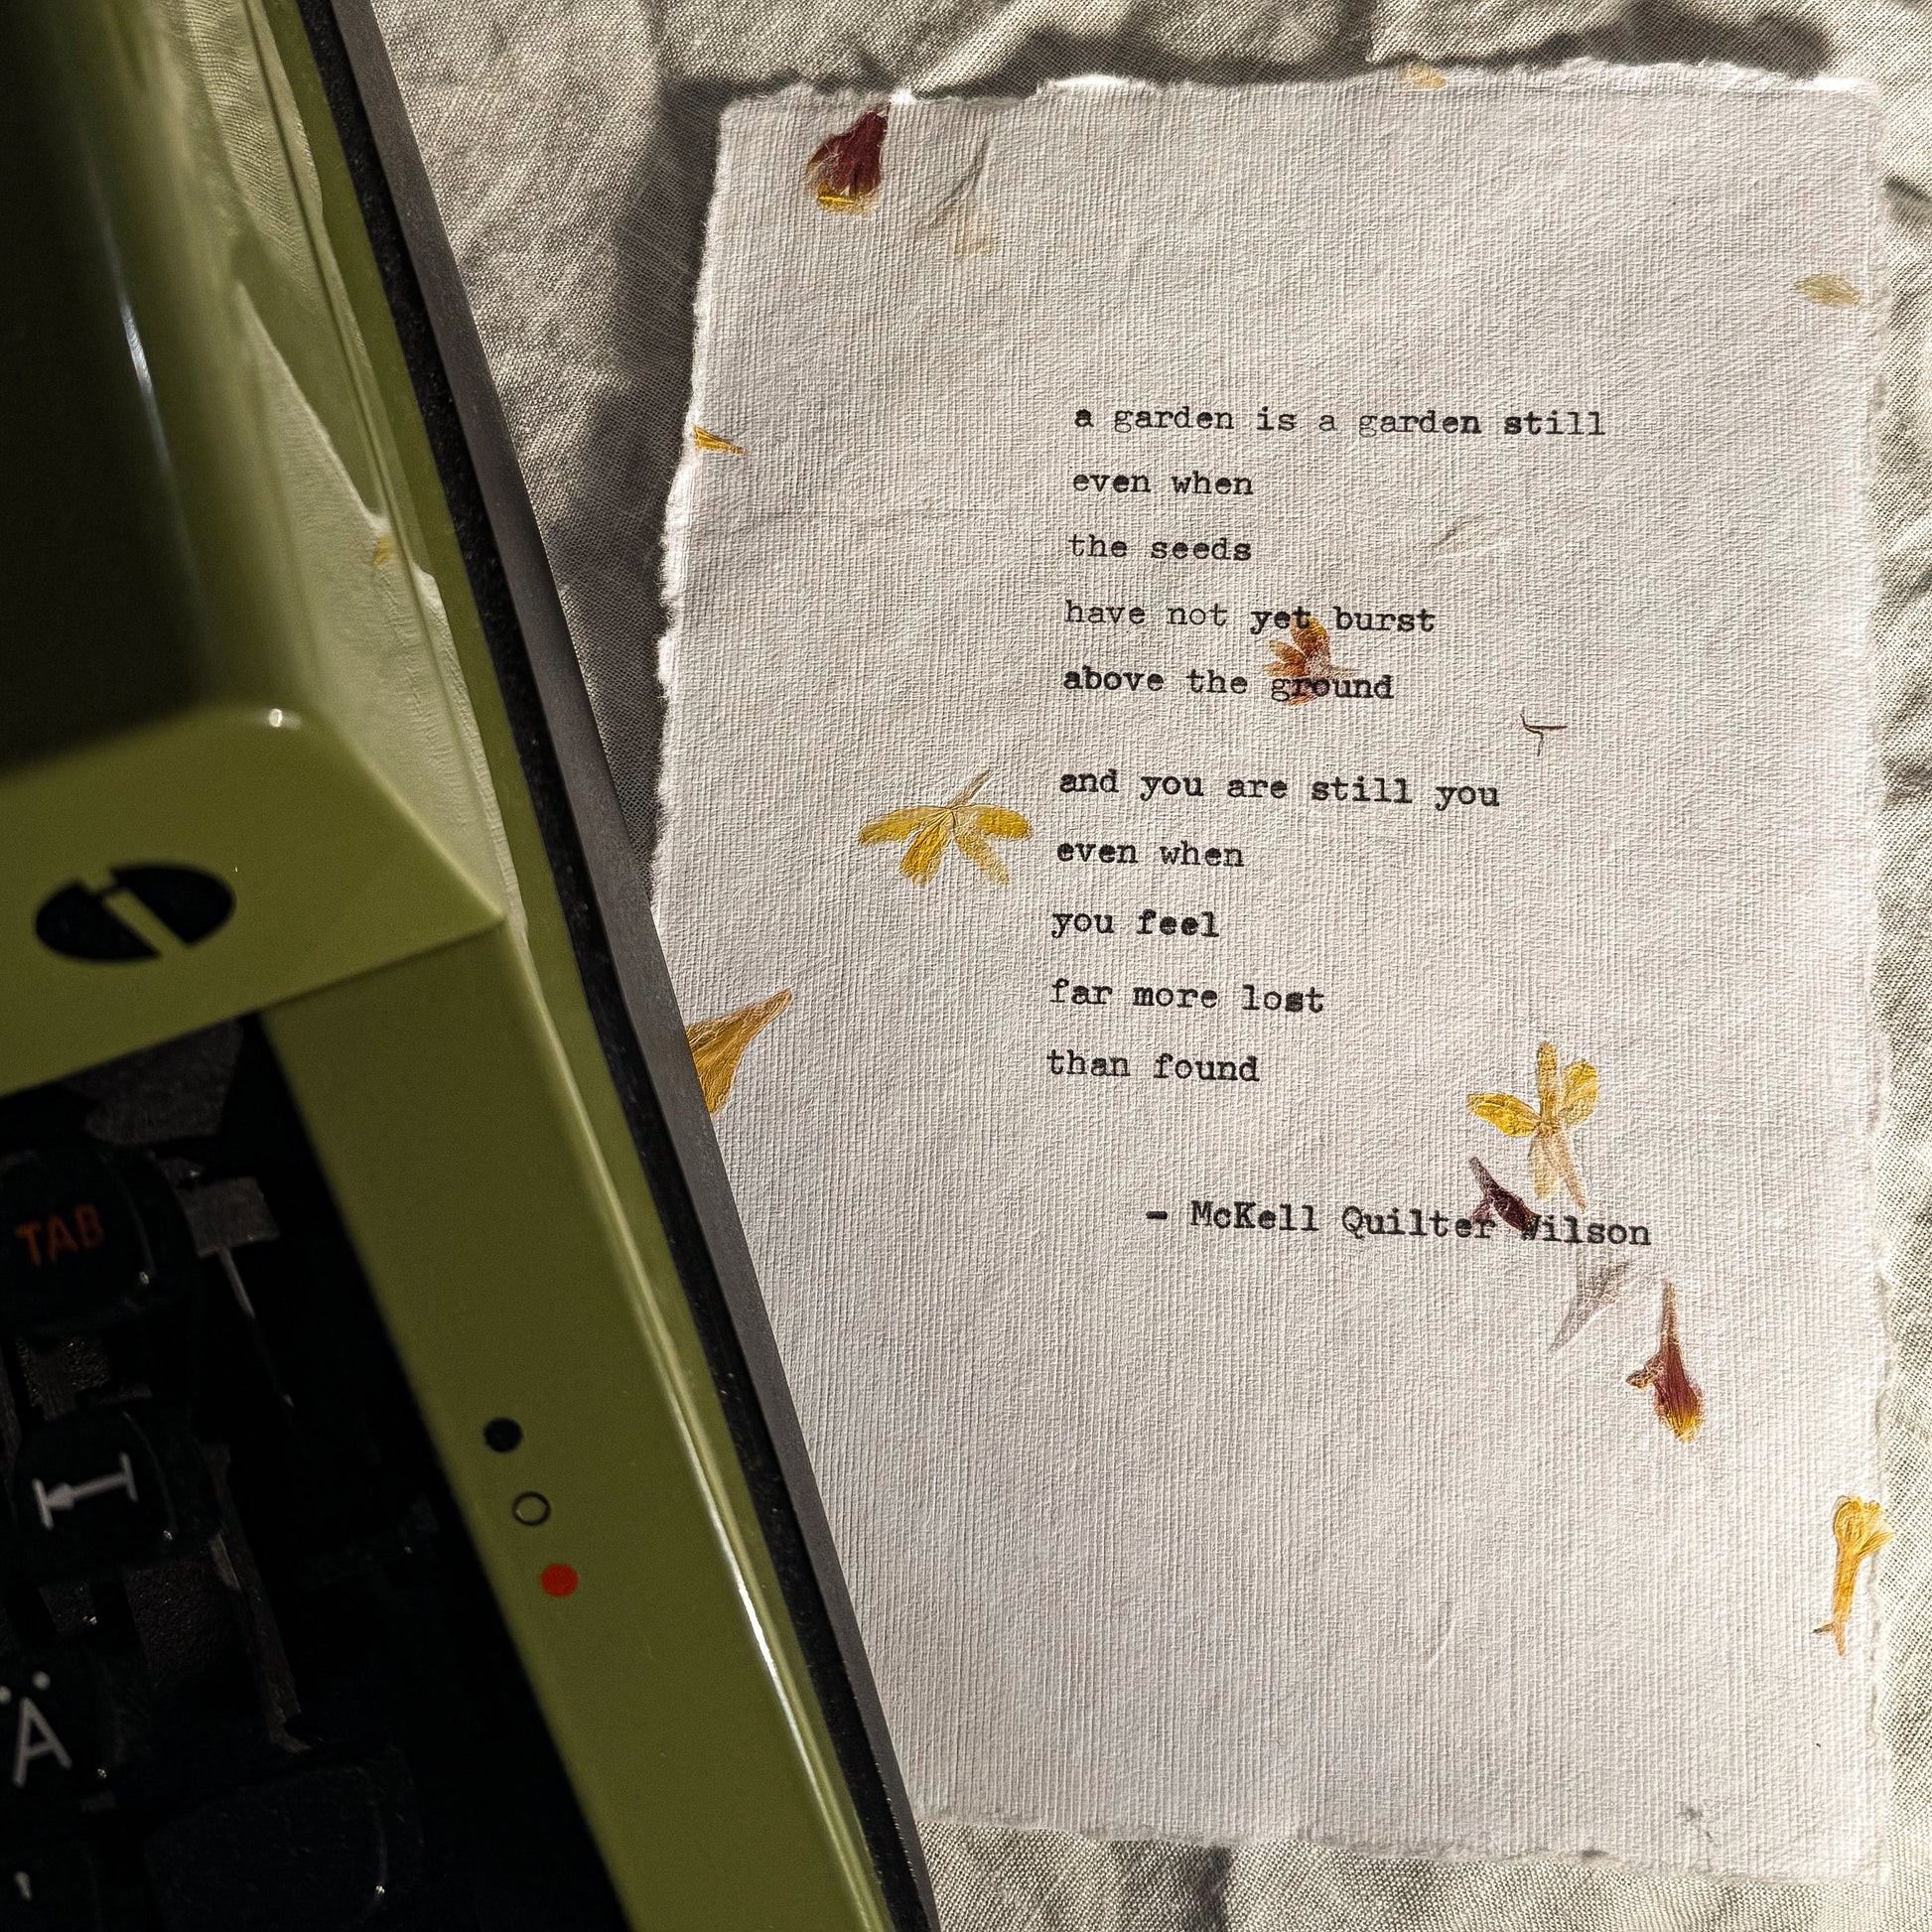 a garden is a garden still
even when
the seeds
have not yet burst
above the ground
and you are still you
even when
you feel
far more lost
than found
- McKell Quilter Wilson
TAB
Ä